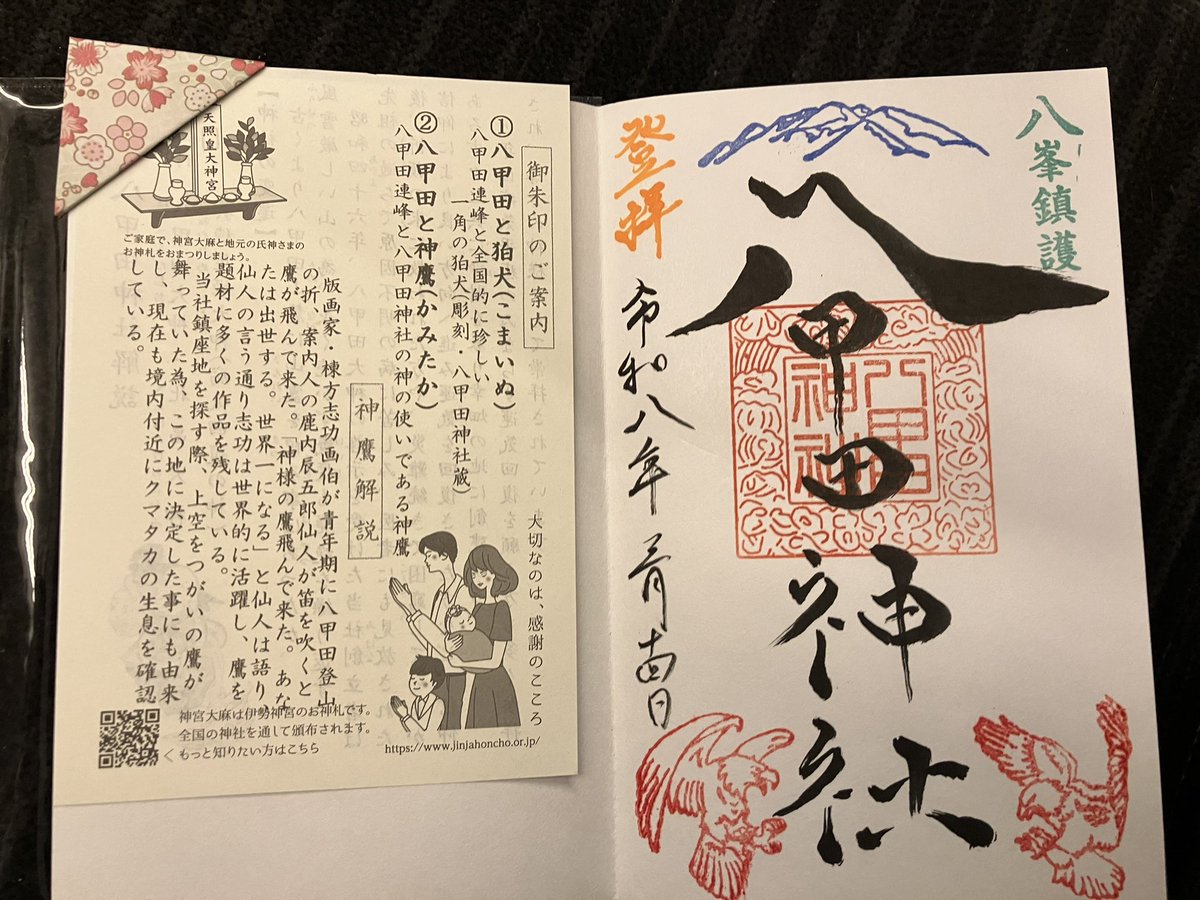 御朱印のご案内
①八甲田と狛犬(こまいぬ)
八甲田連峰と全国的に珍しい
一角の狛犬(彫刻・八甲田神社蔵)
②八甲田と神鷹(かみたか)
八甲田連峰と八甲田神社の神の使いである神鷹
神鷹解説
版画家・棟方志功画伯が青年期に八甲田登山
の折、案内人の鹿内辰五郎仙人が笛を吹くと
鷹が飛んで来た。「神様の鷹飛んで来た。あな
たは出世する。世界一になる」と仙人は語り、
仙人の言う通り志功は世界的に活躍し、鷹を
題材に多くの作品を残している。
当社鎮座地を探す際、上空をつがいの鷹が
舞っていた為、この地に決定した事にも由来
し、現在も境内付近にクマタカの生息を確認
している。
天照皇大神宮
ご家庭で、神宮大麻と地元の氏神さまの
お神札をおまつりしましょう。
大切なのは、感謝のこころ
神宮大麻は伊勢神宮のお神札です。
全国の神社を通して頒布されます。
もっと知りたい方はこちら
https://www.jinjahoncho.or.jp/
八峯鎮護
八甲田神社
八甲田神社
登拝
令和八年三月十四日